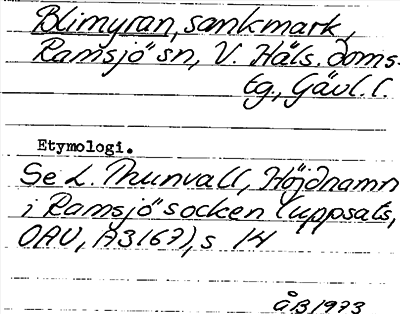 Blimyran, sankmark,
Ramsjö sn, V. Häls. doms.
tg., Gävl. l.
Etymologi.
Se L. Thunvall, Höjdnamn
i Ramsjö socken (uppsats,
OAU, A3167), s 14
ÅB 1973